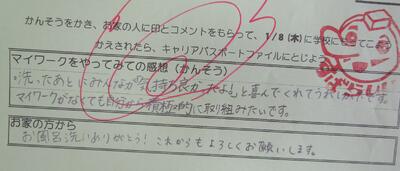 かんそうをかき、お家の人に印とコメントをもらって、1/8(木)に学校にもってこ
かえされたら、キャリアパスポートファイルにとじよう
マイワークをやってみての感想(かんそう)
洗ったあとにみんなが「気持ち良かったよ!」と喜んでくれてうれしかたです。
マイワークがなくても自分から積極的に取り組みたいです。
お家の方から
お風呂洗いありがとう!これからもよろしくお願いします。